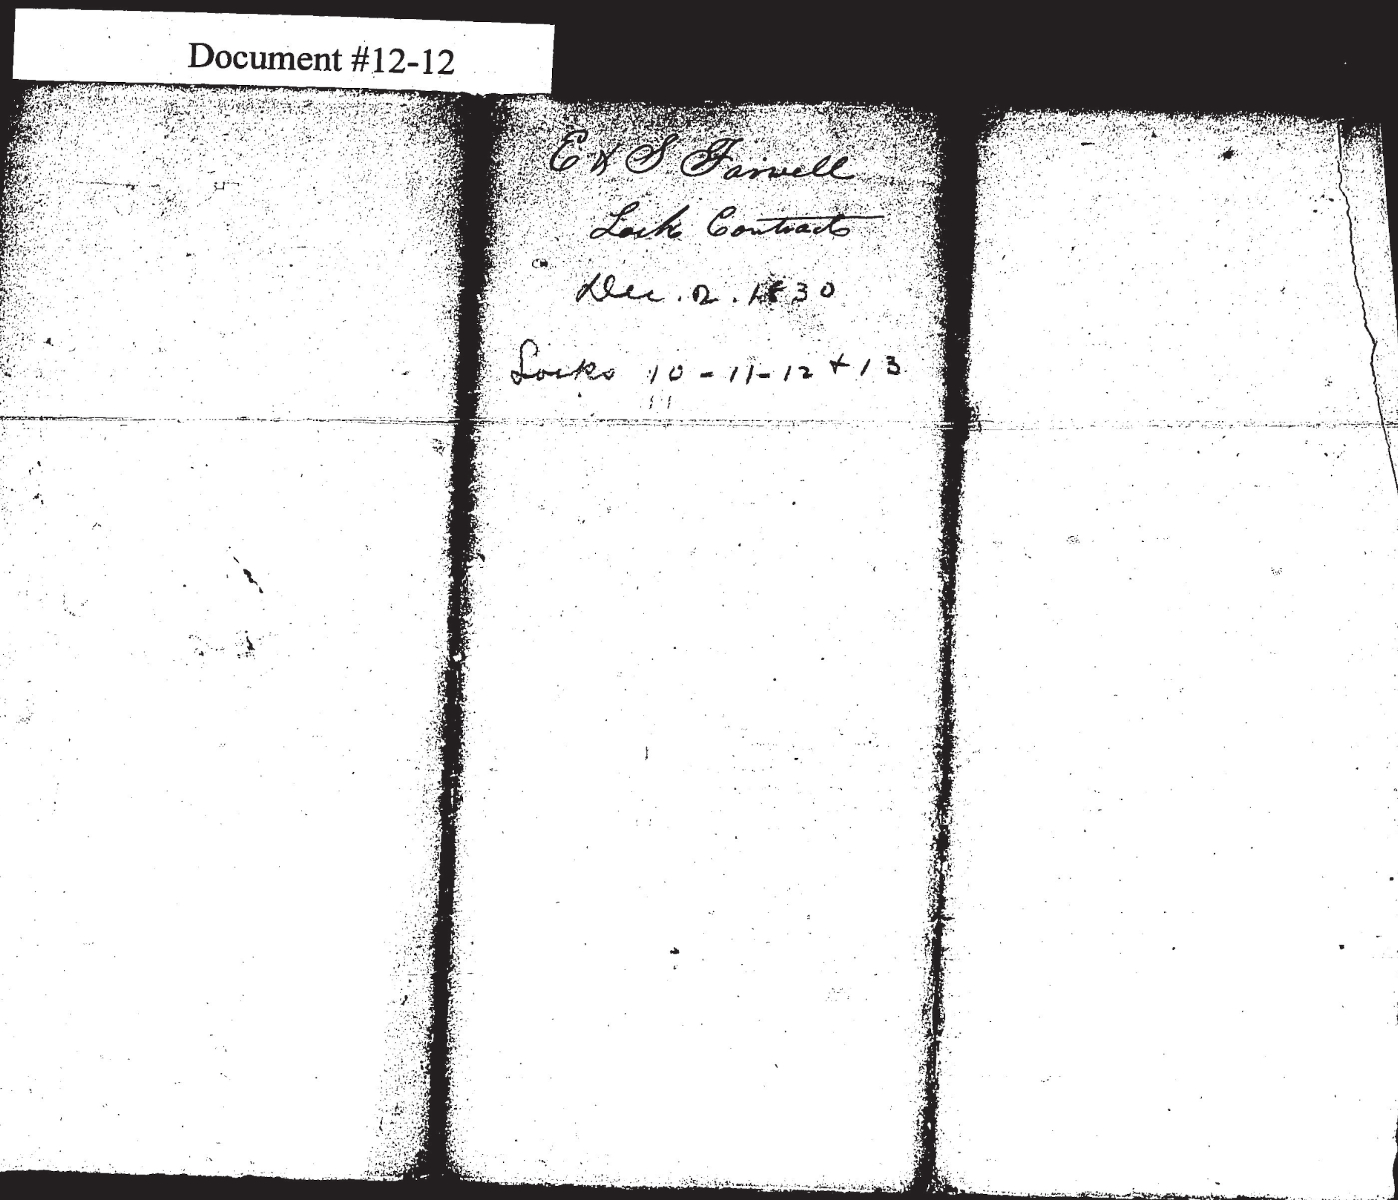 Document #12-12
E & S Farwell
Lock Contract
Dec. 2. 1830
Locks 10-11-12 + 13